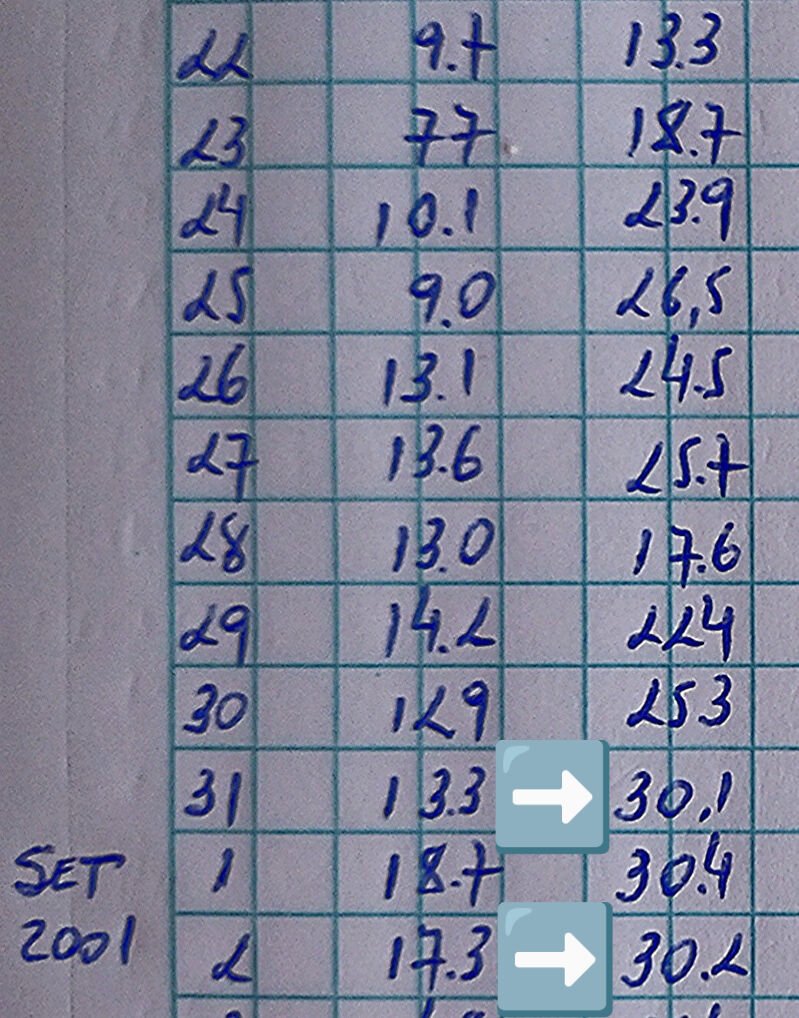 22 9.7 13.3
23 77 18.7
24 10.1 23.9
25 9.0 26,5
26 13.1 24.5
27 13.6 25.7
28 13.0 17.6
29 14.2 224
30 129 253
31 13.3 30,1
SET 1 18.7 30.4
2001 2 17.3 30.2